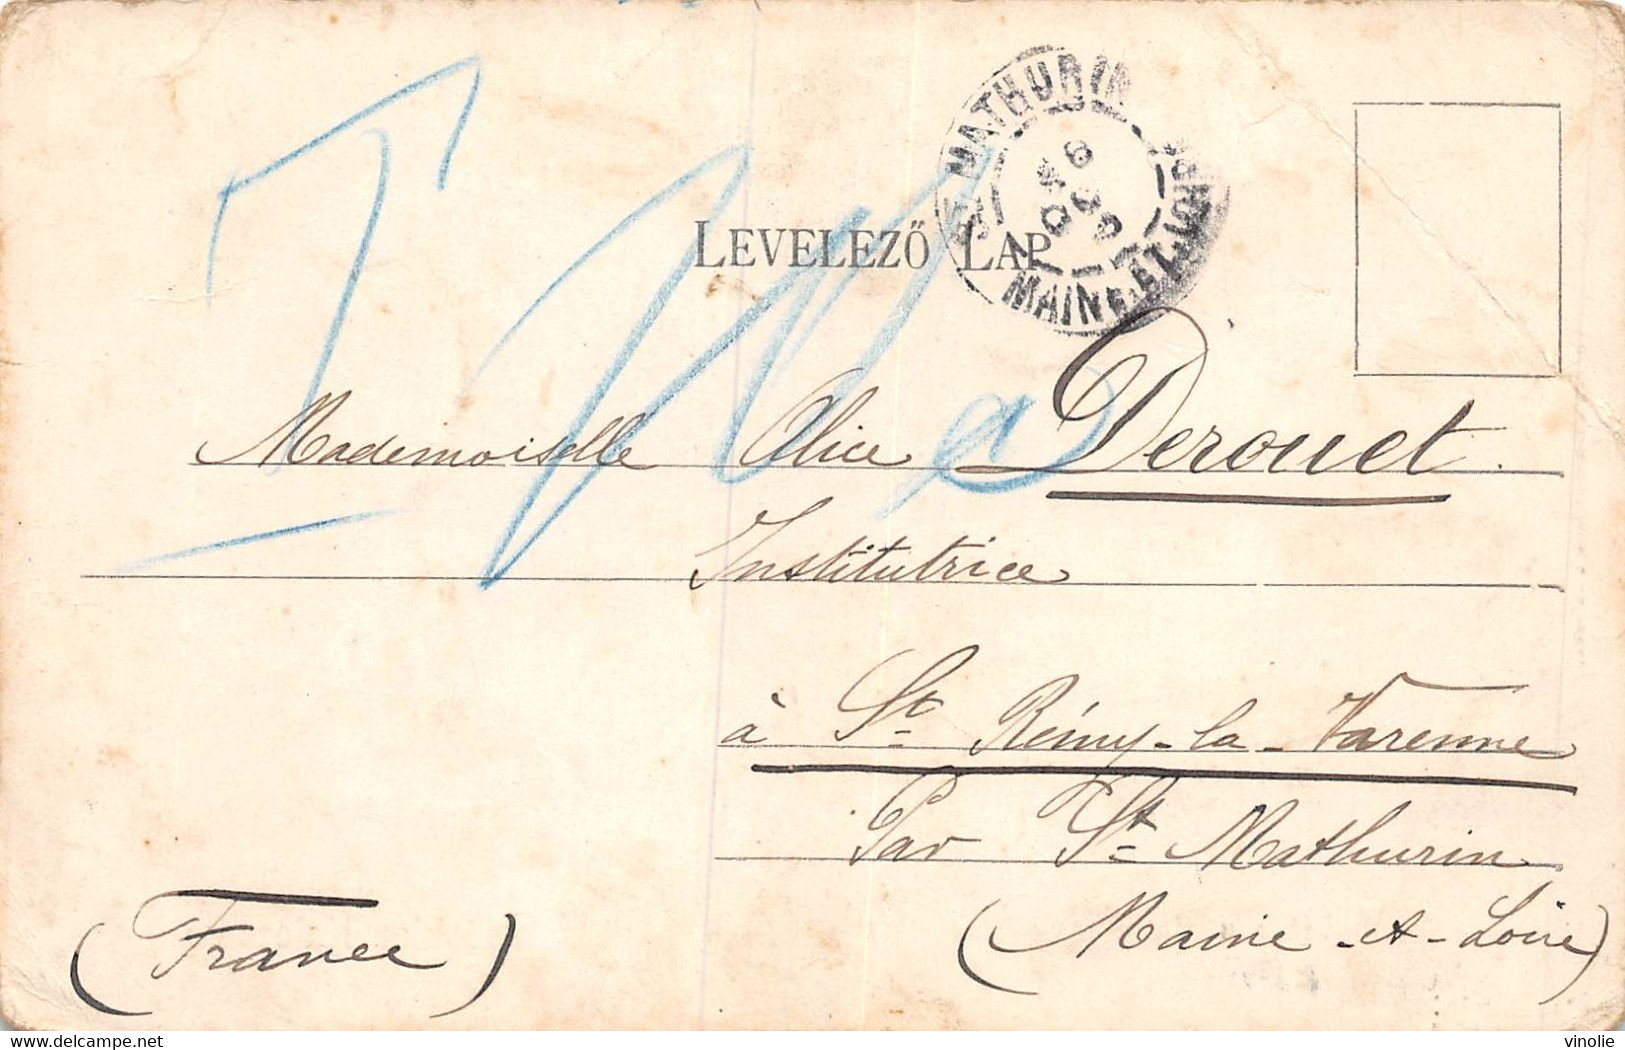 ST MATHURIN
MAINE-ET-LOIRE
LEVELEZŐ LAP
T
Mademoiselle Alice Derouet
Institutrice
à St Rémy-la-Varenne
Par St Mathurin
(Maine-et-Loire)
(France)
www.delcampe.net
vinolie